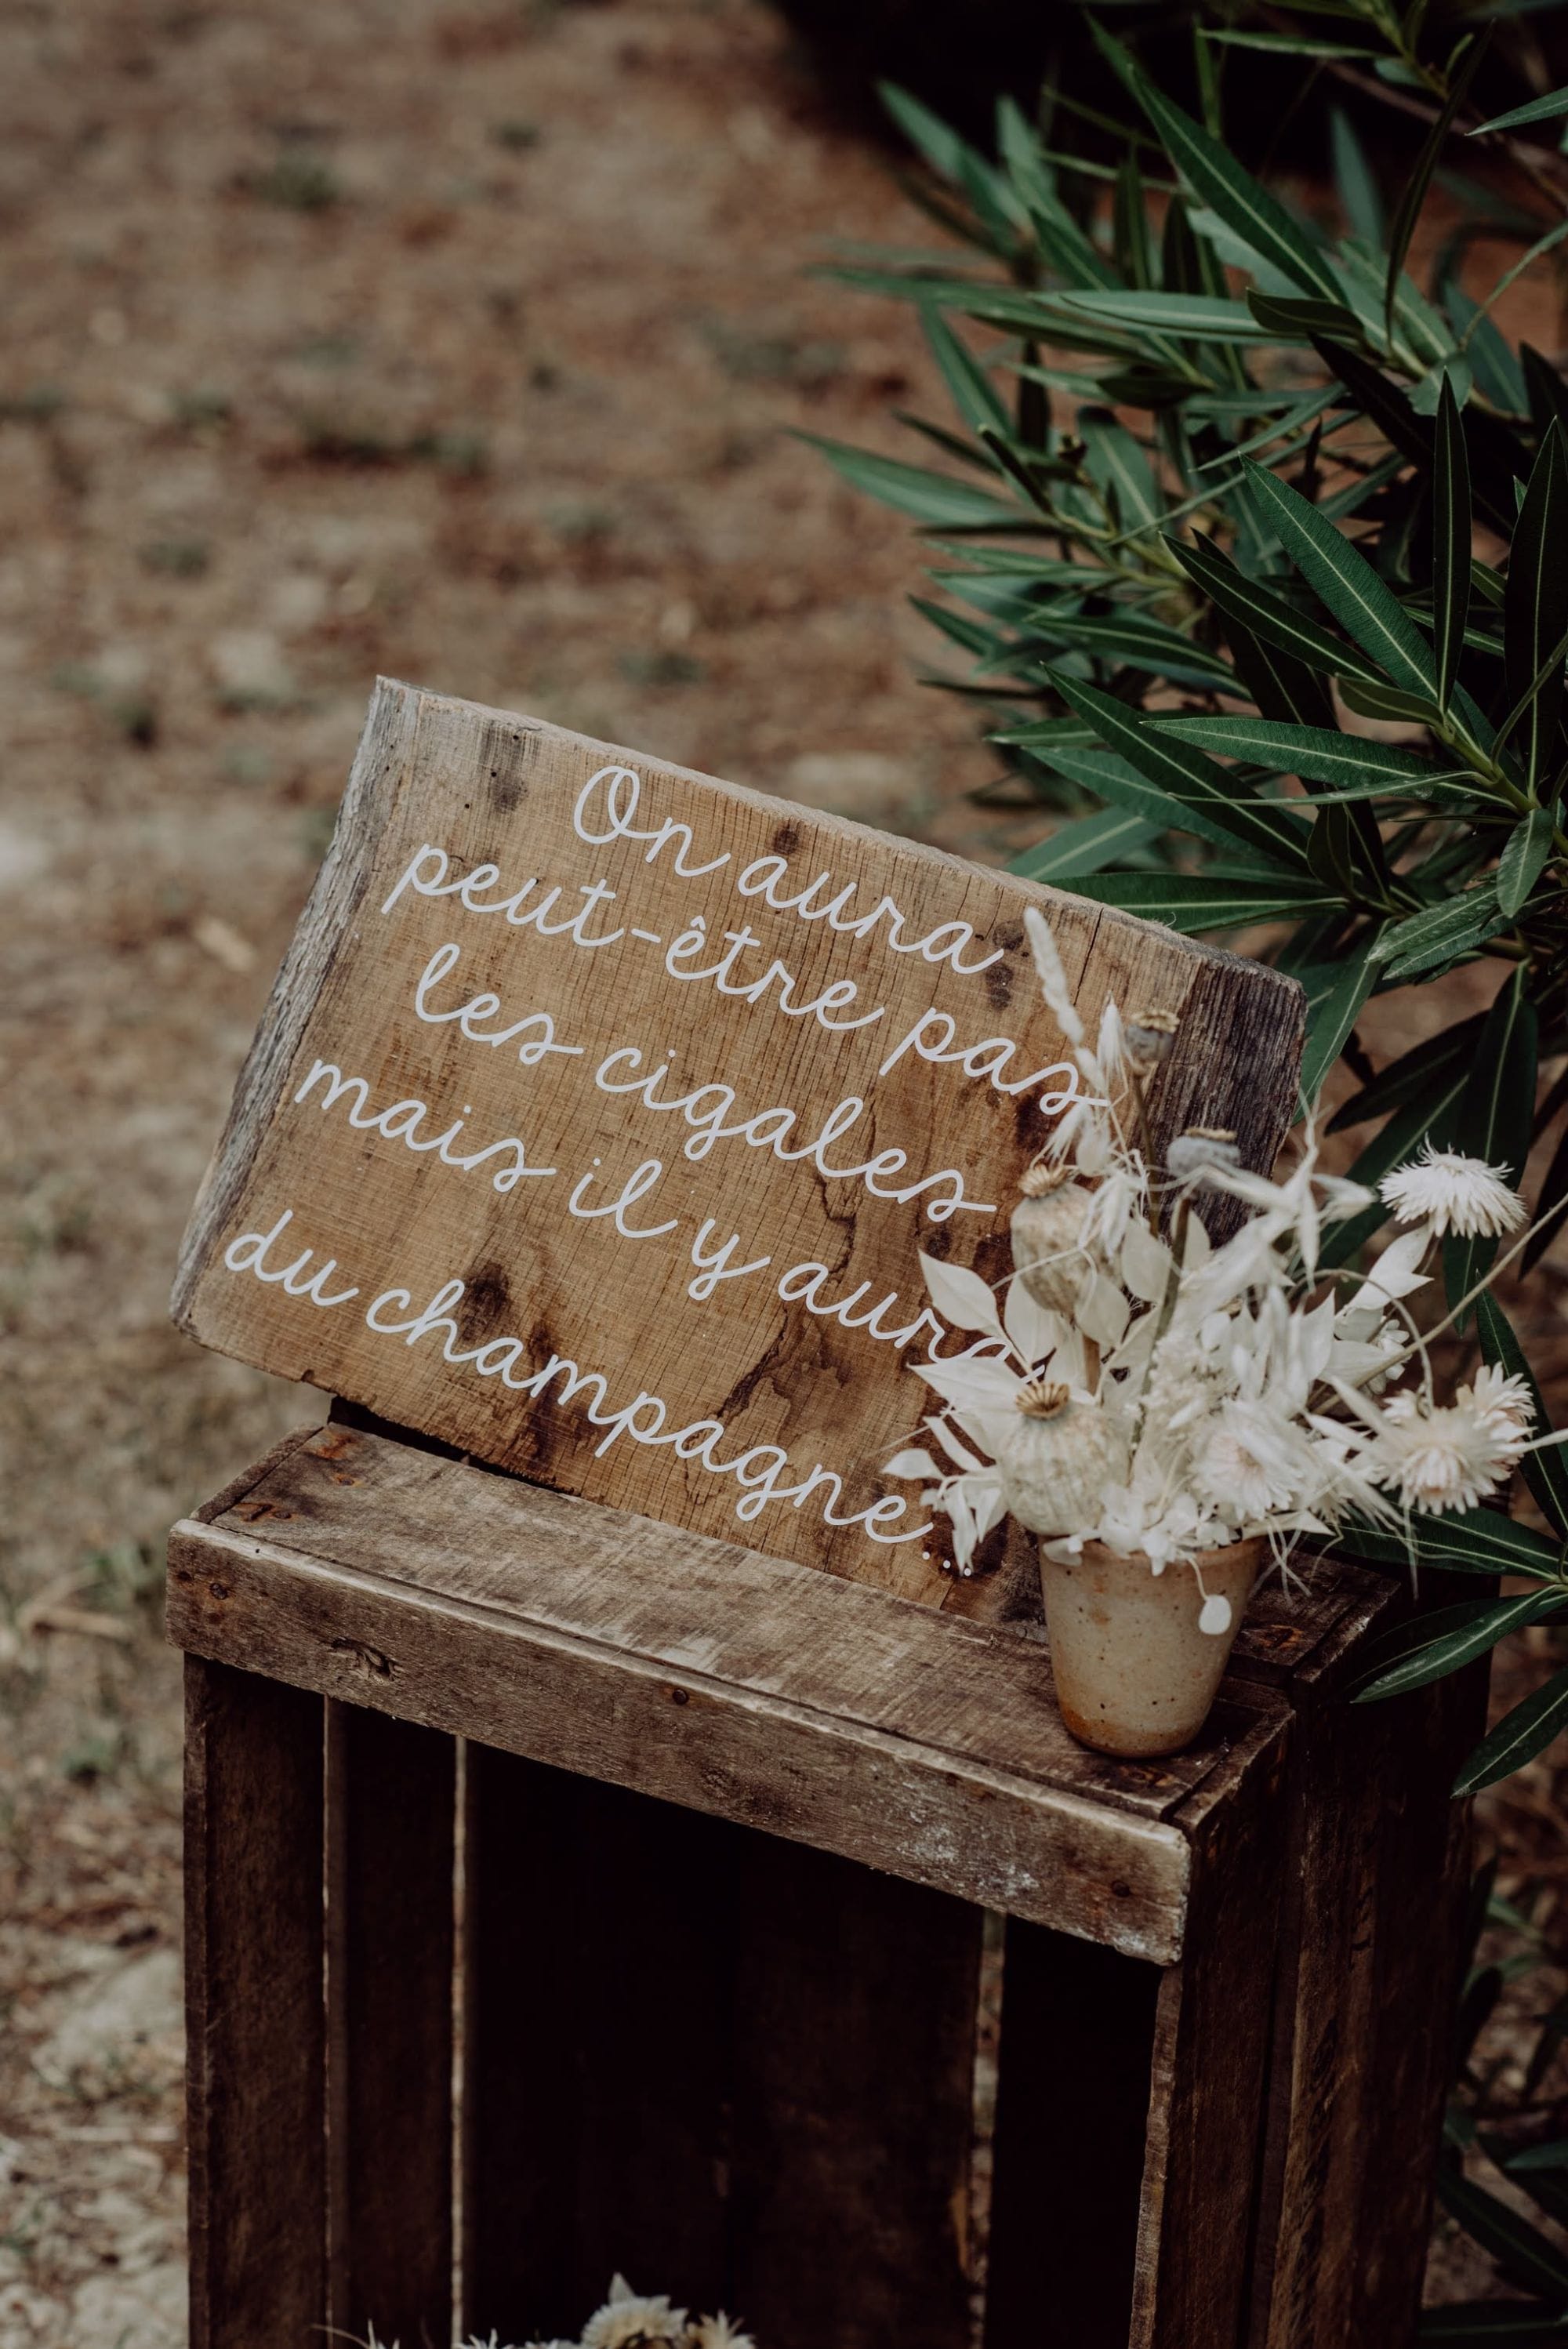 On aura
peut-être pas
les cigales
mais il y aura
du champagne...